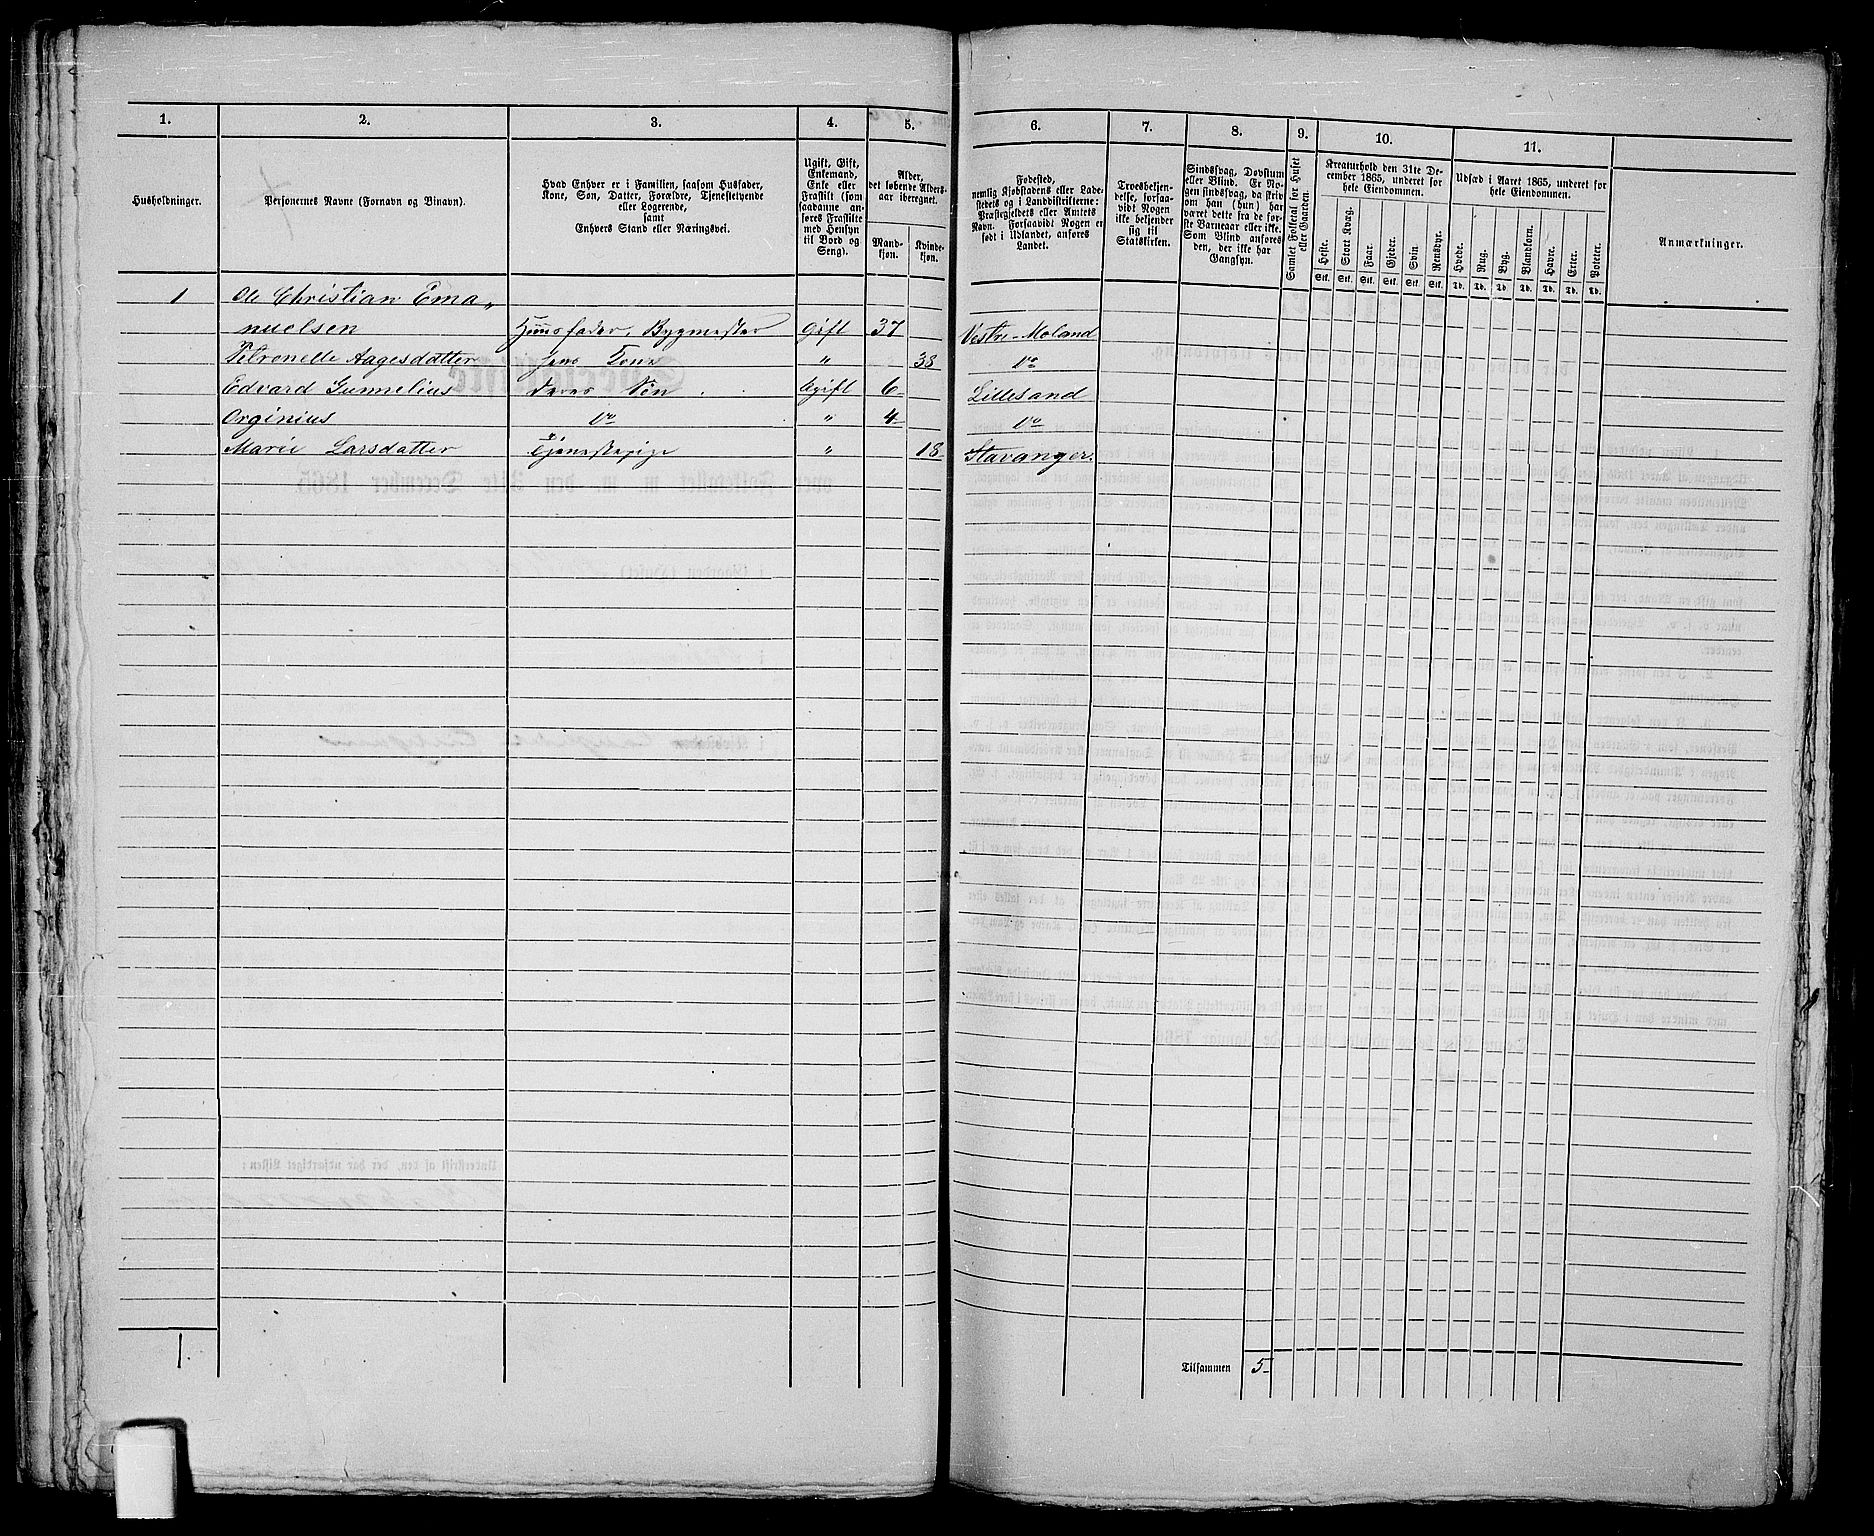 1. 2. 3. 4. 5. 6. 7. 8. 9. 10. 11.
Husholdninger.
Personernes Navne (Fornavn og Binavn).
Hvad Enhver er i Familien, saasom Husfader,
Kone, Søn, Datter, Forældre, Tjenestetyende
eller Logerende,
samt
Enhvers Stand eller Næringsvei.
Ugift, Gift,
Enkemand,
Enke eller
Fraskilt (som
saadanne an-
føres Fraskilte
med Hensyn
til Bord og
Seng).
Alder,
det løbende Alders-
aar iberegnet.
Mand-
kjøn.
Kvinde-
kjøn.
Fødested,
nemlig Kjøbstadens eller Lade-
stedets og i Landdistrikterne:
Præstegjeldets eller Amtets
Navn. Forsaavidt Nogen er
født i Udlandet, anføres
Landet.
Troesbekjen-
delse, forsaa-
vidt Nogen
ikke bekjender
sig til
Statskirken.
Sindssvag, Døvstum
eller Blind. Er No-
gen sindssvag, da skriv
om han (hun) har
været dette fra de før-
ste Barneaar eller ikke.
Som Blind anføres
den, der ikke har
Gangsyn.
Samlet Folketal for Huset
eller Gaarden.
Kreaturhold den 31te De-
cember 1865, underet for
hele Eiendommen.
Heste. Stort Kvæg. Faar. Gjeder. Svin. Rensdyr.
Stk. Stk. Stk. Stk. Stk. Stk.
Udsæd i Aaret 1865, underet for
hele Eiendommen.
Hvede. Rug. Byg. Blandkorn. Havre. Erter. Poteter.
Td. Td. Td. Td. Td. Td. Td.
Anmærkninger.
1 Ole Christian Ema„
nuelsen Huusfader, Bygmester Gift 37 Vestre-Moland
Petronelle Aagesdatter hans Kone „ 38 do
Edvard Gunnelius Deres Søn Ugift 6 Lillesand
Orginius do „ 4 do
Marie Larsdatter Tjenestepige „ 18 Stavanger.
1.
Tilsammen 5